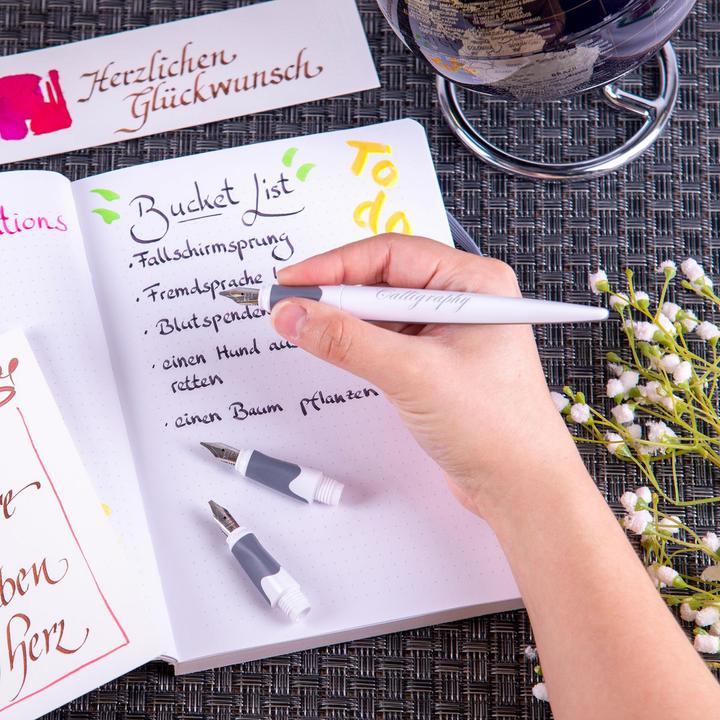 Herzlichen
Glückwunsch
Bucket List
To
do
• Fallschirmsprung
• Fremdsprache
• Blutspenden
• einen Hund
retten
• einen Baum pflanzen
Calligraphy